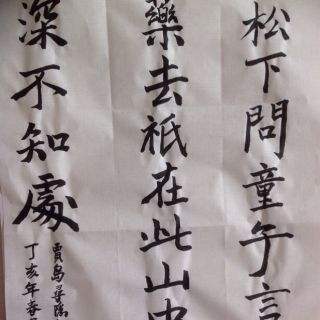 松下問童子言
藥去祇在此山中
深不知處
賈島尋隱
丁亥年春